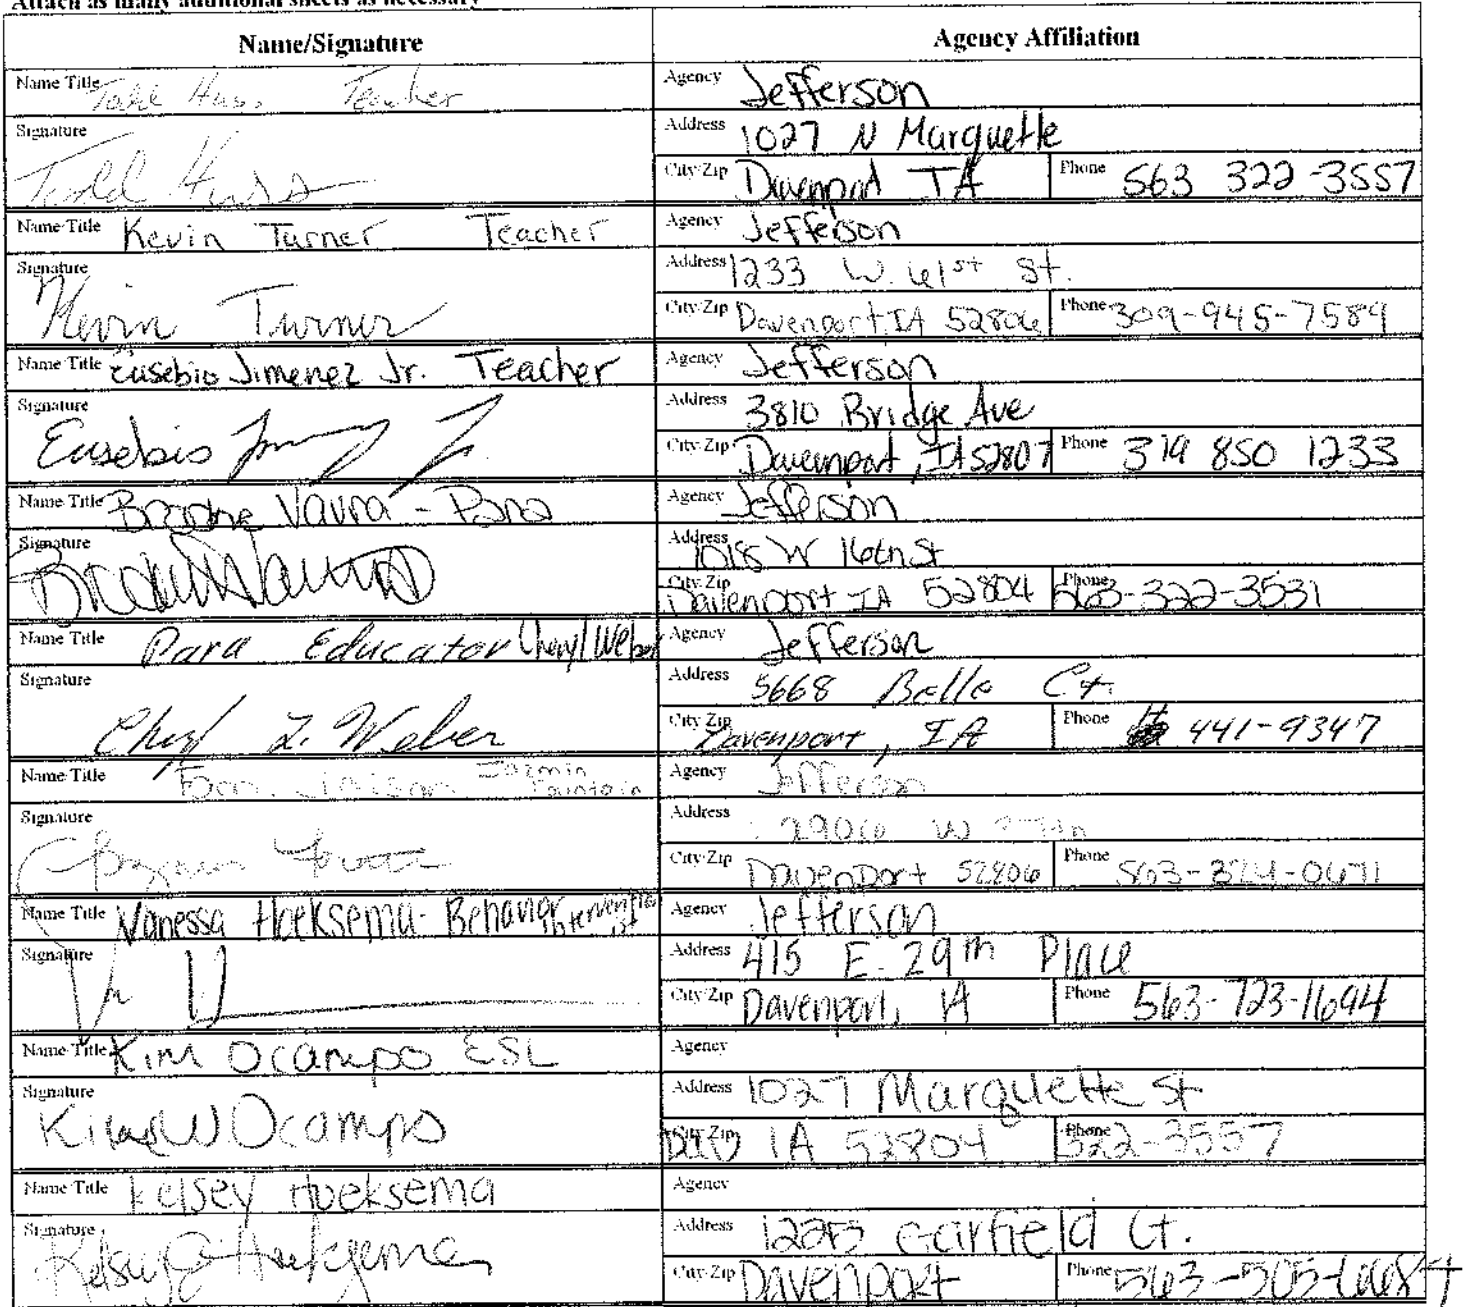 Attach as many additional sheets as necessary
Name/Signature Agency Affiliation
Name Title Todd Huss Teacher Agency Jefferson
Signature Todd Huss Address 1027 N Marquette
City/Zip Davenport IA Phone 563 322-3557
Name/Title Kevin Turner Teacher Agency Jefferson
Signature Kevin Turner Address 1233 W. 61st St.
City/Zip Davenport, IA 52806 Phone 309-945-7589
Name Title Eusebio Jimenez Jr. Teacher Agency Jefferson
Signature Eusebio Jr. Address 3810 Bridge Ave
City/Zip Davenport, IA 52807 Phone 319 850 1233
Name Title Vavra - Para Agency Jefferson
Signature Address 1018 W 16th St
City/Zip Davenport IA 52804 Phone 563-322-3531
Name Title Para Educator Cheryl Weber Agency Jefferson
Signature Cheryl L. Weber Address 5668 Belle Ct.
City/Zip Davenport, IA Phone 441-9347
Name Title Fam. Liaison Jazmin Fountain Agency Jefferson
Signature Address 2906 W
City/Zip Davenport 52806 Phone 563-324-0671
Name Title Vanessa Hoeksema- Behavior Interventionist Agency Jefferson
Signature Address 415 E. 29th Place
City/Zip Davenport, IA Phone 563-723-1694
Name/Title Kim Ocampo ESL Agency
Signature Kim W Ocampo Address 1027 Marquette St
City/Zip Dav IA 52804 Phone 322-3557
Name Title Kelsey Hoeksema Agency
Signature Kelsey Hoeksema Address Garfield Ct.
City/Zip Davenport Phone 563-505-6684